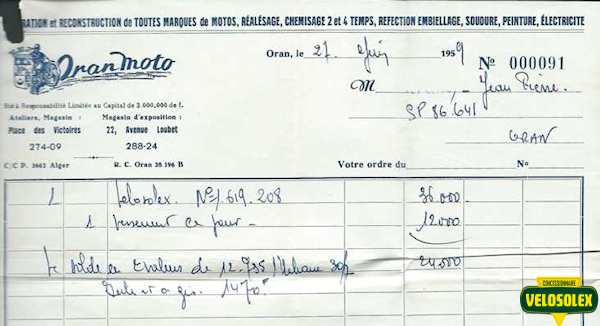 RATION et RECONSTRUCTION de TOUTES MARQUES de MOTOS, RÉALÉSAGE, CHEMISAGE 2 et 4 TEMPS, REFECTION EMBIELLAGE, SOUDURE, PEINTURE, ÉLECTRICITE
Oran moto
Oran, le 27 Juin 1959
Nº 000091
M Jean Pierre.
Sté à Responsabilité Limitée au Capital de 2.000.000 de f.
SP 86.641
Ateliers, Magasin : Magasin d'exposition :
Place des Victoires 22, Avenue Loubet
ORAN
274-09 288-24
C/C P. 3663 Alger R. C. Oran 38.196 B
Votre ordre du No
1 Velosolex. Nº 1.619.208 36 000
1 versement ce jour - 12000
Le solde en traites de 12.735 30/ 24 000
1470
CONCESSIONNAIRE
VELOSOLEX